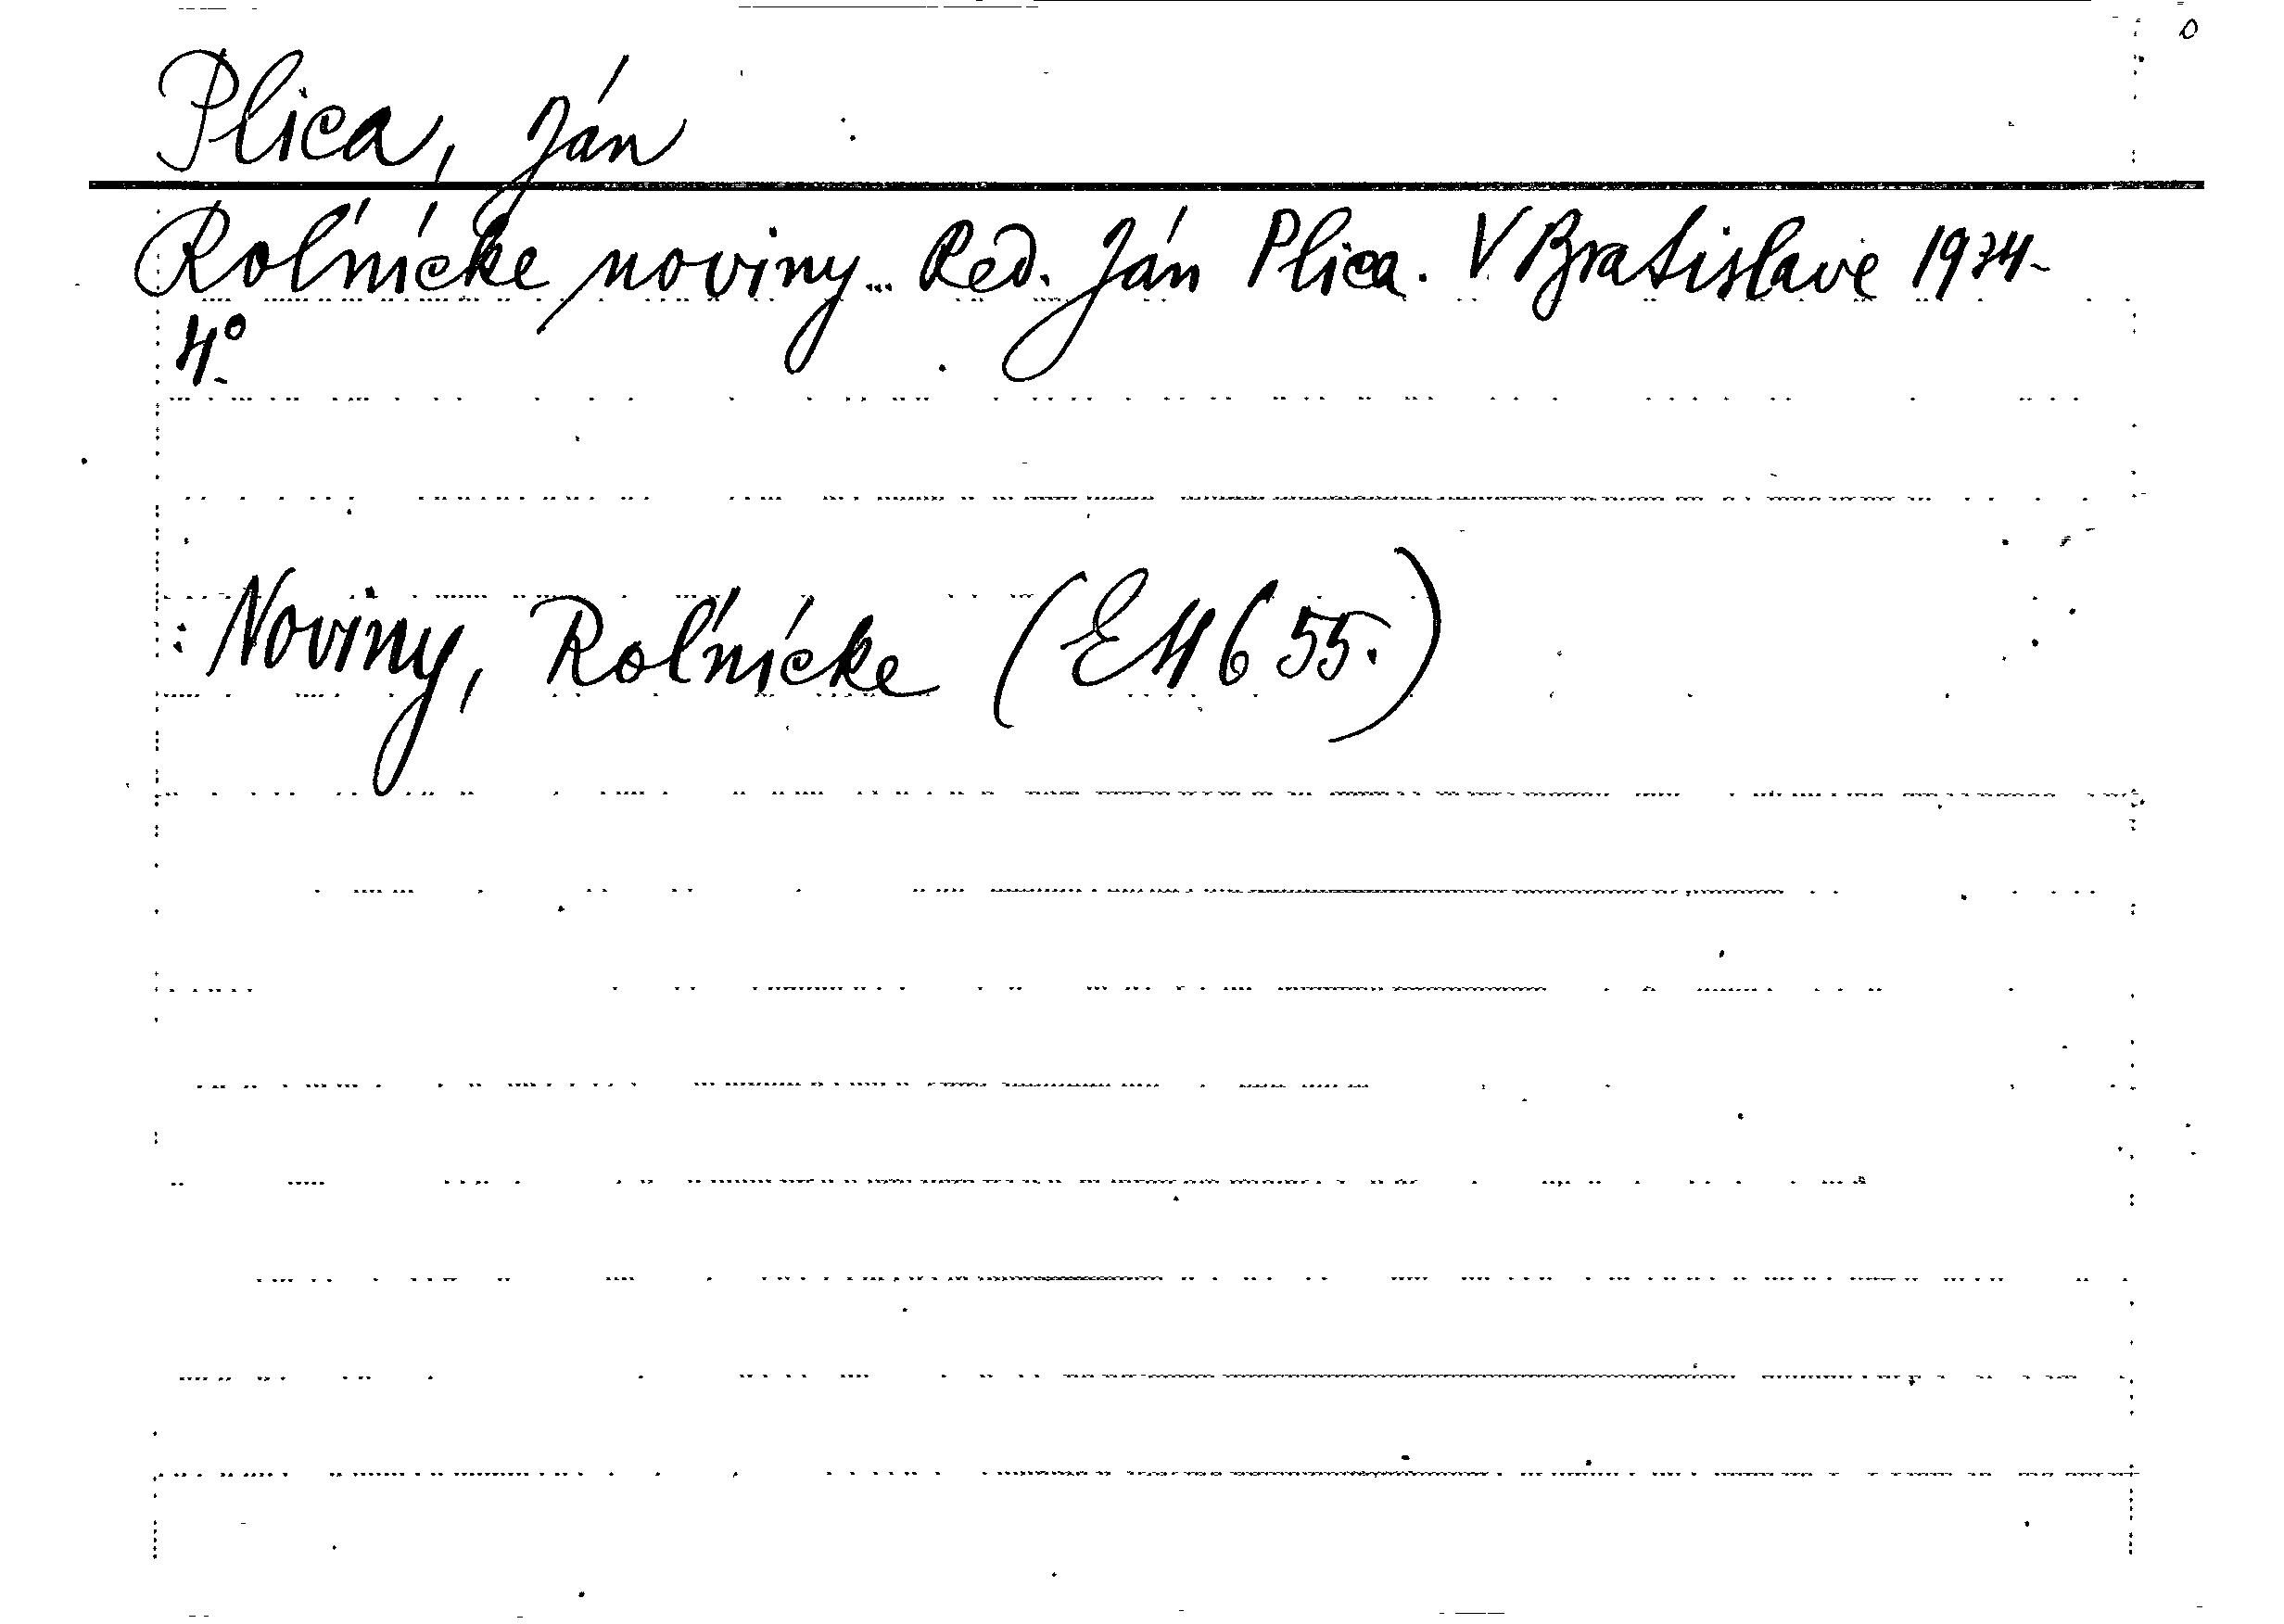 Plica, Ján
Roľnícke noviny... Red. Ján Plica. V Bratislave 1934-
4°
Noviny, Roľnícke (E 4655.)